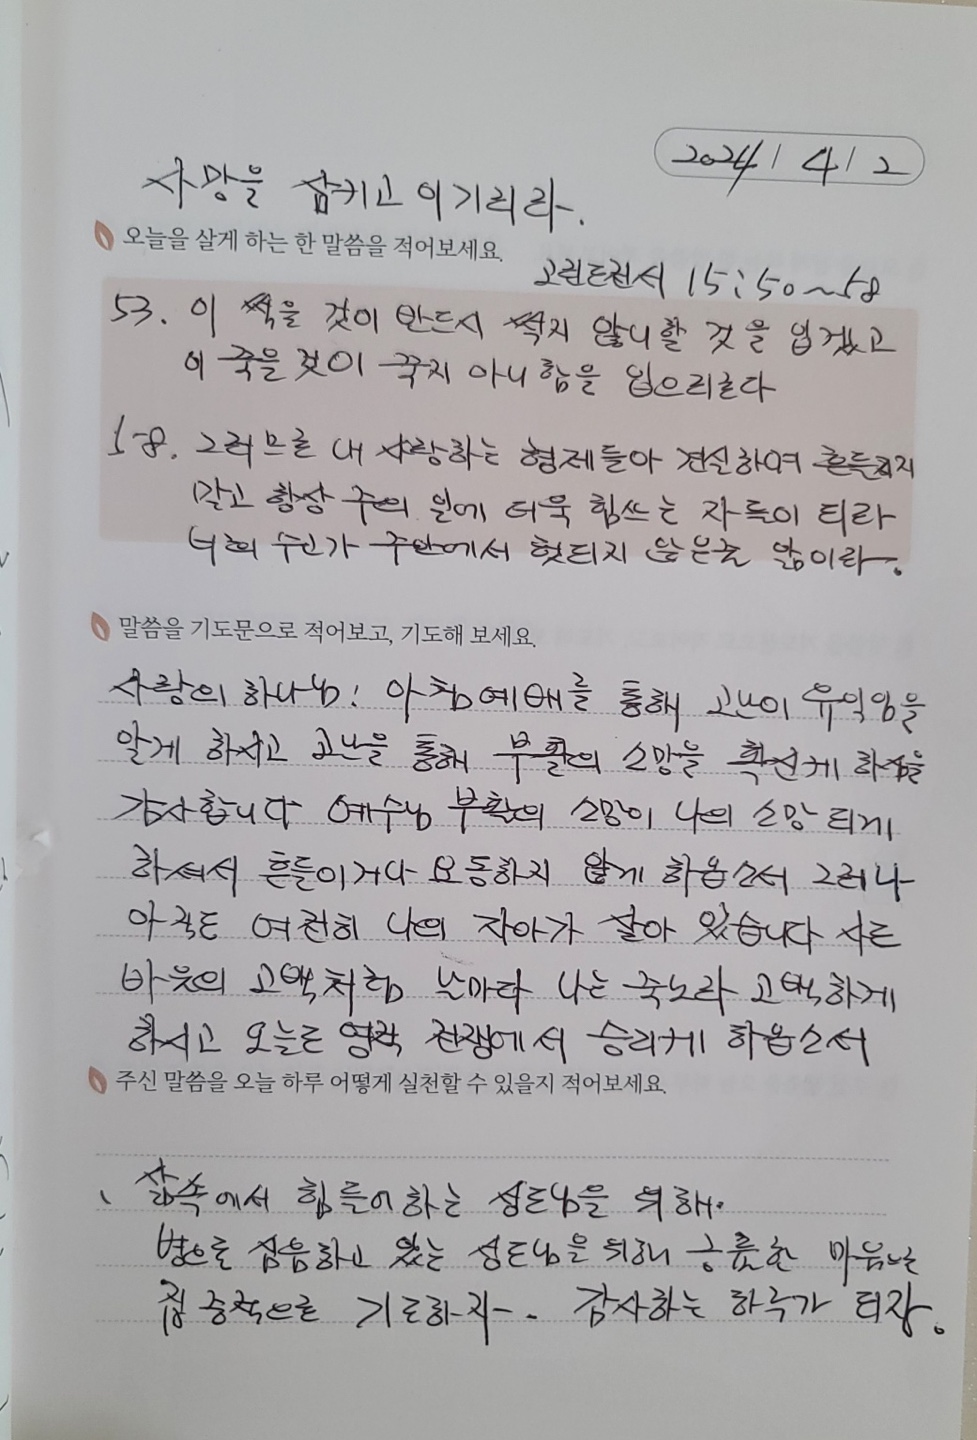 2024 / 4 / 2
사망을 삼키고 이기리라.
오늘을 살게 하는 한 말씀을 적어보세요.
고린도전서 15:50~58
53. 이 썩을 것이 반드시 썩지 않니할 것을 입겠고
이 죽을 것이 죽지 아니함을 입으리로다
58. 그러므로 내 사랑하는 형제들아 견실하여 흔들리지
말고 항상 주의 일에 더욱 힘쓰는 자들이 되라
너희 수고가 주안에서 헛되지 않은줄 앎이라.
말씀을 기도문으로 적어보고, 기도해 보세요.
사랑의 하나님! 아침예배를 통해 고난이 유익임을
알게 하시고 고난을 통해 부활의 소망을 확신케 하심을
감사합니다 예수님 부활의 소망이 나의 소망 되게
하셔서 흔들이거나 요동하지 않게 하옵소서 그러나
아직도 여전히 나의 자아가 살아 있습니다 사도
바웃의 고백처럼 날마다 나는 죽노라 고백하게
하시고 오늘도 영적 전쟁에서 승리케 하옵소서
주신 말씀을 오늘 하루 어떻게 실천할 수 있을지 적어보세요.
삶속에서 힘들어하는 성도님을 위해.
병으로 싸움하고 있는 성도님을 위해 긍휼한 마음으로
집중적으로 기도하자. 감사하는 하루가 되자.